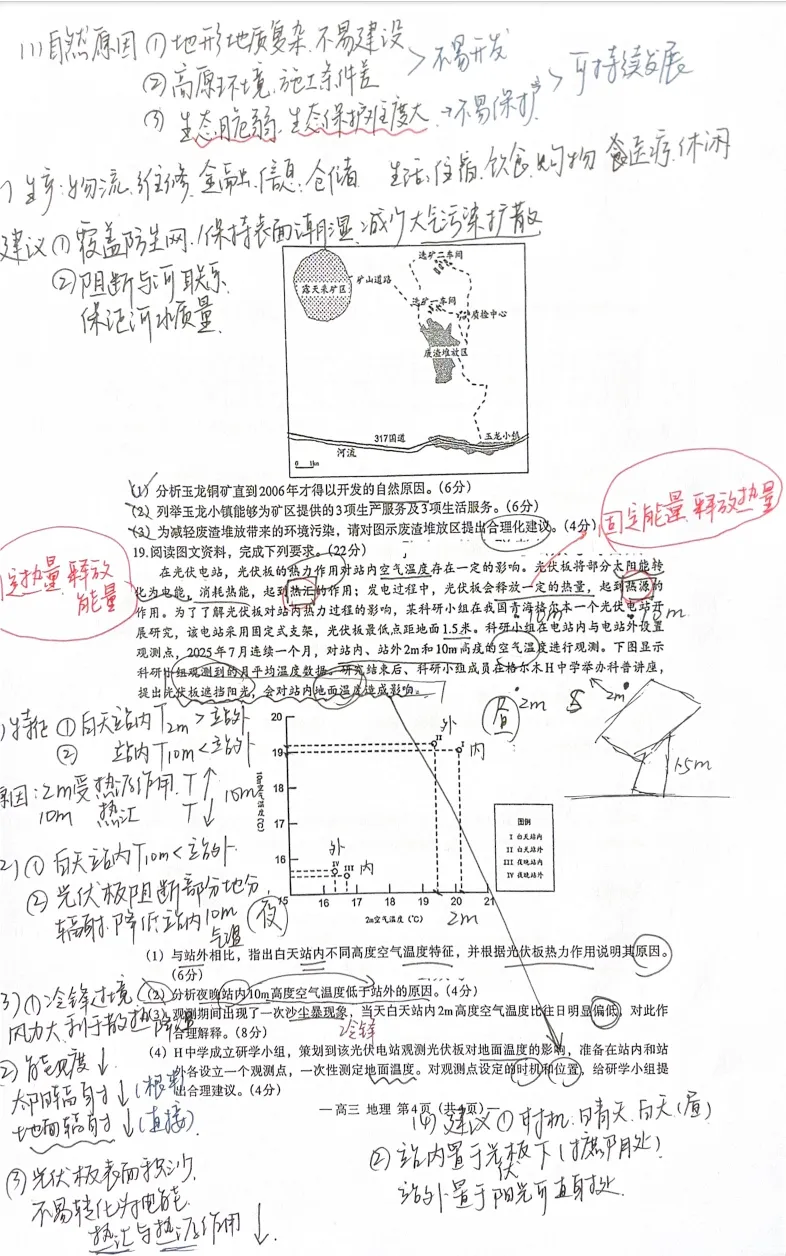 (1)自然原因 ①地形地质复杂,不易建设
②高原环境,施工条件差
> 不易开发
③ 生态脆弱,生态保护难度大 → 不易保护
> 可持续发展
生产:物流,维修,金融,信息,仓储 生活:住宿,饮食,购物 医疗,休闲
建议 ① 覆盖防尘网,保持表面潮湿,减少大气污染扩散
②阻断与河联系,
保证河水质量
露天采矿区
矿山道路
选矿二车间
选矿一车间
质检中心
废渣堆放区
317国道
玉龙小镇
河流
0 1km
(1) 分析玉龙铜矿直到2006年才得以开发的自然原因。(6分)
(2) 列举玉龙小镇能够为矿区提供的3项生产服务及3项生活服务。(6分)
(3) 为减轻废渣堆放带来的环境污染,请对图示废渣堆放区提出合理化建议。(4分)
固定能量,释放热量
19.阅读图文资料,完成下列要求。(22分)
热量,释放
能量
在光伏电站,光伏板的热力作用对站内空气温度存在一定的影响。光伏板将部分太阳能转
化为电能,消耗热能,起到热汇的作用;发电过程中,光伏板会释放一定的热量,起到热源的
作用。为了了解光伏板对站内热力过程的影响,某科研小组在我国青海格尔木一个光伏电站开
展研究,该电站采用固定式支架,光伏板最低点距地面1.5米。科研小组在电站内与电站外设置
观测点,2025年7月连续一个月,对站内、站外2m和10m高度的空气温度进行观测。下图显示
科研小组观测到的月平均温度数据。研究结束后,科研小组成员在格尔木H中学举办科普讲座,
提出光伏板遮挡阳光,会对站内地面温度造成影响。
10m
10m
特征 ①白天站内T2m>站外
② 站内T10m<站外
原因:2m受热源作用,T↑
10m 热汇 T↓
2) ① 白天站内T10m<站外
② 光伏板阻断部分地分
辐射,降低站内10m
气温
20
19
18
17
16
15
15 16 17 18 19 20 21
10m空气温度(℃)
2m空气温度(℃)
10m
2m
外 II
I 内
外 IV
III 内
昼
夜
图例
I 白天站内
II 白天站外
III 夜晚站内
IV 夜晚站外
2m
2m
1.5m
(1) 与站外相比,指出白天站内不同高度空气温度特征,并根据光伏板热力作用说明其原因。
(6分)
(2) 分析夜晚站内10m高度空气温度低于站外的原因。(4分)
(3) 观测期间出现了一次沙尘暴现象,当天白天站内2m高度空气温度比往日明显偏低,对此作
出合理解释。(8分)
冷锋
(4) H中学成立研学小组,策划到该光伏电站观测光伏板对地面温度的影响,准备在站内和站
外各设立一个观测点,一次性测定地面温度。对观测点设定的时机和位置,给研学小组提
出合理建议。(4分)
3) ①冷锋过境
风力大,利于散热降温
②能见度↓
太阳辐射↓(根本)
地面辐射↓(直接)
③光伏板表面积沙,
不易转化为电能,
热汇与热源作用↓
—高三 地理 第4页 (共4页)—
(4) 建议 ① 时机:日晴天,白天(昼)
② 站内置于光伏板下(遮阴处)
站外置于阳光可直射处